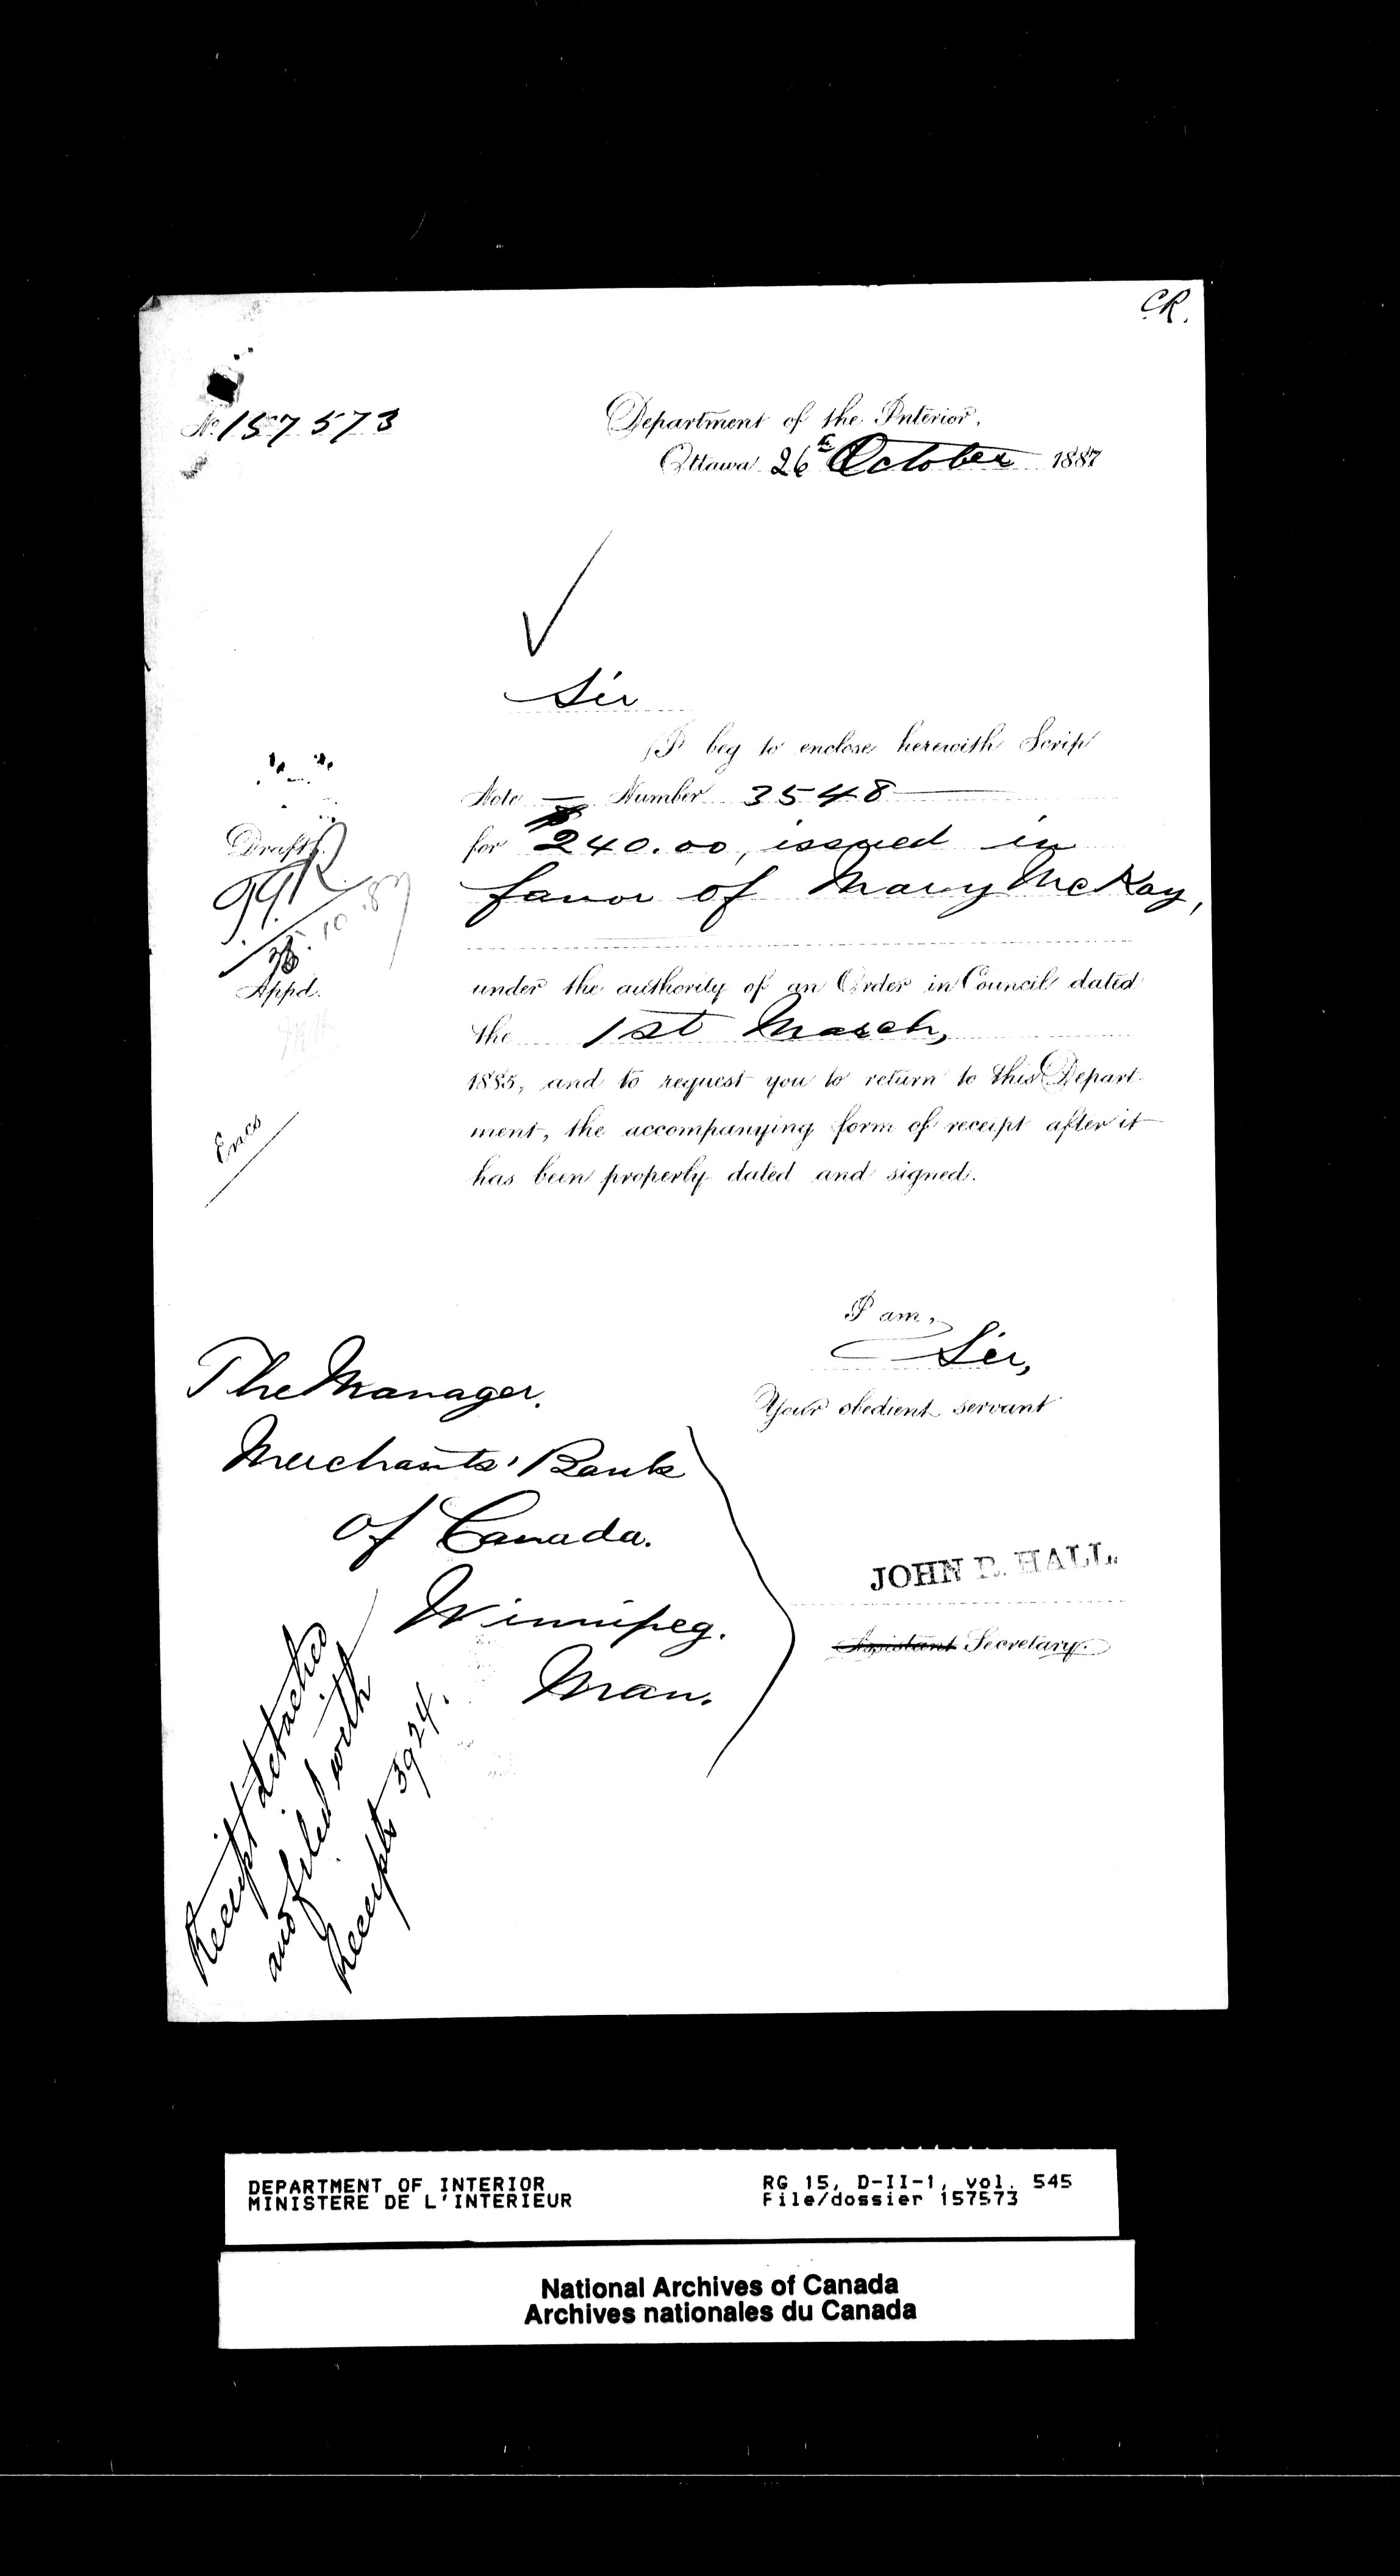 C.R.
No. 157573
Department of the Interior,
Ottawa 26th October 1887
Sir
I beg to enclose herewith Scrip
Note — Number 3548
for $240.00, issued in
favor of Mary McKay,
under the authority of an Order in Council dated
the 1st March,
1885, and to request you to return to this Depart-
ment, the accompanying form of receipt after it
has been properly dated and signed.
Draft.
10.87
Appd.
Encs
I am,
Sir,
Your obedient servant
JOHN R. HALL.
Assistant Secretary.
The Manager.
Merchants' Bank
of Canada.
Winnipeg.
Man.
Receipt detached
and filed with
Receipts 3924.
DEPARTMENT OF INTERIOR
MINISTERE DE L'INTERIEUR
RG 15, D-II-1, vol. 545
File/dossier 157573
National Archives of Canada
Archives nationales du Canada